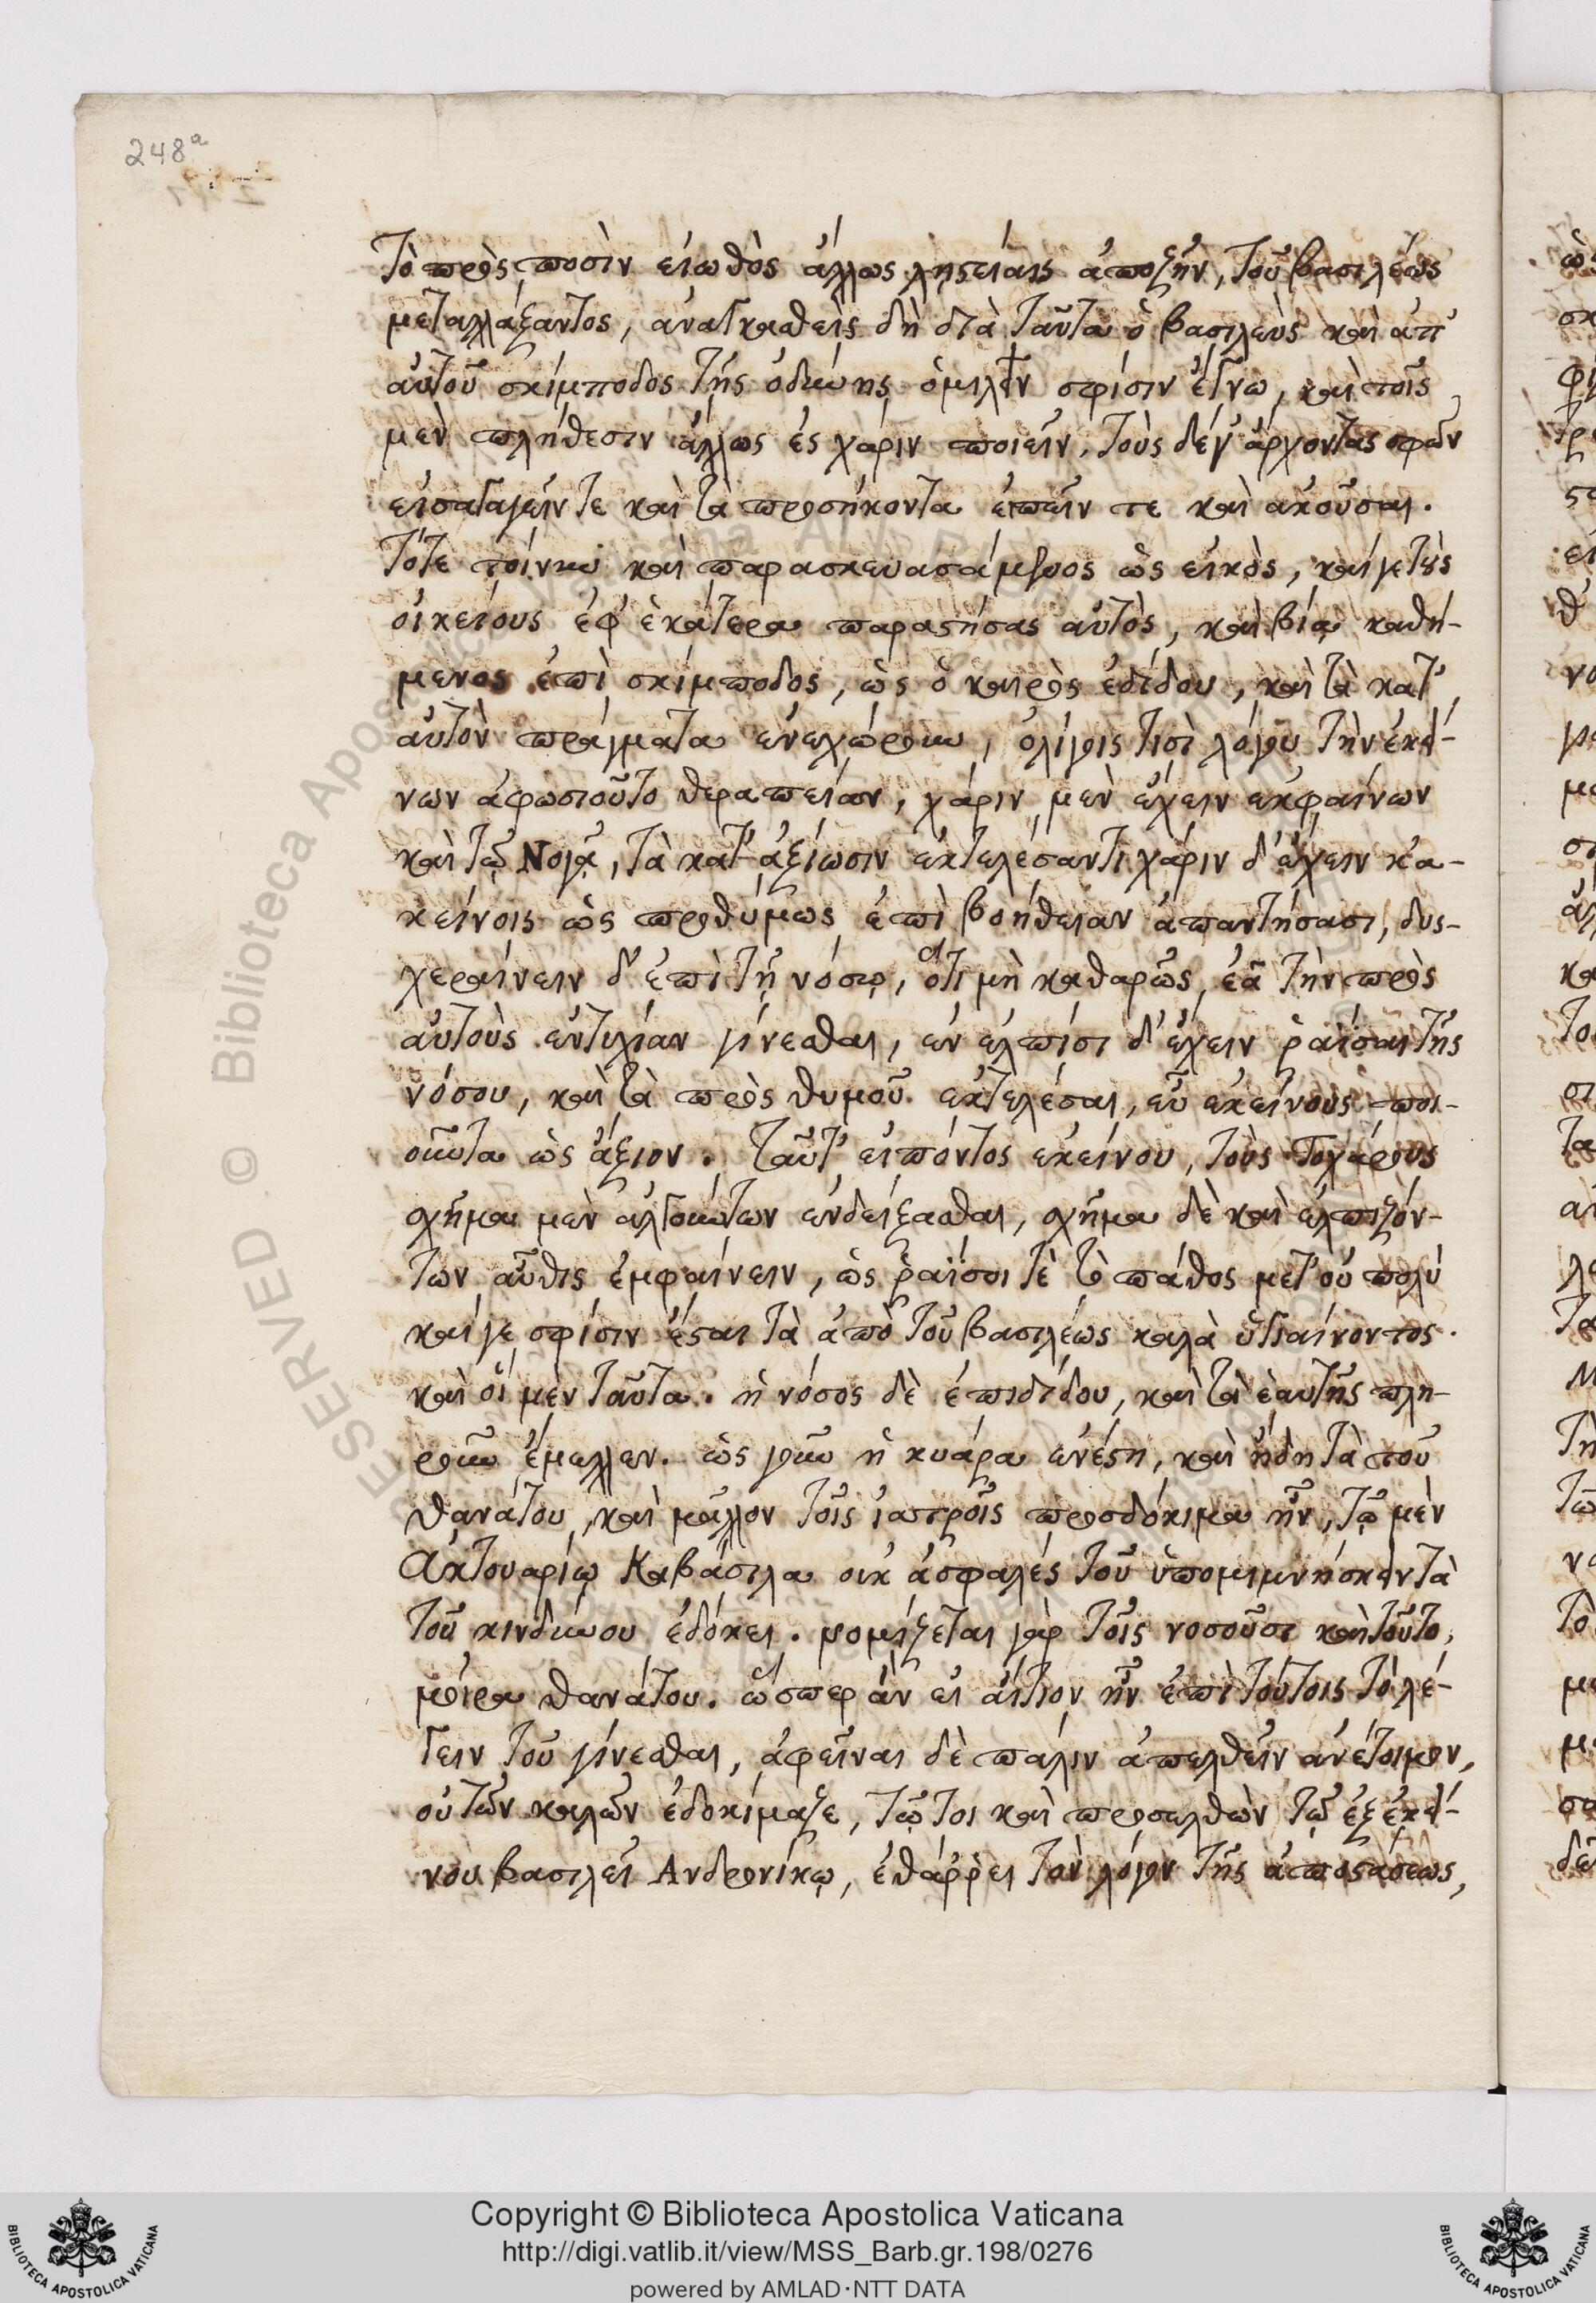 248a
Τὸ πρὸς ποσὶν εἰωθὸς ἄλλως λῃστείαις ἀποζῆν, τοῦ βασιλέως
μεταλλάξαντος, ἀναγκασθεὶς δὴ διὰ ταῦτα ὁ βασιλεὺς καὶ ἀπ᾽
αὐτοῦ σκίμποδος τῆς ὀδύνης ὁμιλεῖν σφίσιν ἔγνω, καὶ τοῖς
μὲν πλήθεσιν ἄλλως ἐς χάριν ποιεῖν, τοὺς δέ γ᾽ ἄρχοντας σφῶν
εἰσαγαγεῖν τε καὶ τὰ προσήκοντα εἰπεῖν τε καὶ ἀκοῦσαι.
Τότε τοίνυν καὶ παρασκευασάμενος ὡς εἰκὸς, καί γε τοὺς
οἰκείους ἐφ᾽ ἑκάτερα παραστήσας αὐτὸς, καὶ βίᾳ καθή-
μενος ἐπὶ σκίμποδος, ὡς ὁ καιρὸς ἐδίδου, καὶ τὰ κατ᾽
αὐτὸν πράγματα ἐνεχώρουν, ὀλίγοις τισὶ λόγοις τὴν ἐκεί-
νων ἀφωσιοῦτο θεραπείαν, χάριν μὲν ἔχειν ἐκφαίνων
καὶ τῷ Νογᾷ, τὰ κατ᾽ ἀξίωσιν ἐκτελέσαντι χάριν δ᾽ ἔχειν κἀ-
κείνοις ὡς προθύμως ἐπὶ βοήθειαν ἀπαντήσασι, δυς-
χεραίνειν δ᾽ ἐπὶ τῇ νόσῳ, ὅτι μὴ καθαρῶς ἐᾷ τὴν πρὸς
αὐτοὺς ἐντυχίαν γίνεσθαι, ἐν ἐλπίσι δ᾽ ἔχειν ῥαΐσαι τῆς
νόσου, καὶ τὰ πρὸς θυμοῦ ἐκτελέσαι, εὖ ἐκείνους ποι-
οῦντα ὡς ἄξιον. Ταῦτ᾽ εἰπόντος ἐκείνου, τοὺς Τοχάρους
σχῆμα μὲν ἀλγούντων ἐνδείξασθαι, σχῆμα δὲ καὶ ἐλπιζόν-
των αὖθις ἐμφαίνειν, ὡς ῥαΐσοι τὲ τὸ πάθος μετ᾽ οὐ πολὺ
καί γε σφίσιν ἔσται τὰ ἀπὸ τοῦ βασιλέως καλὰ ὑγιαίνοντος.
καὶ οἱ μὲν ταῦτα. ἡ νόσος δὲ ἐπεδίδου, καὶ τὰ ἑαυτῆς πλη-
ροῦν ἔμελλεν. ὡς γοῦν ἡ κυάρα ἐνέστη, καὶ ἤδη τὰ τοῦ
θανάτου, καὶ μᾶλλον τοῖς ἰατροῖς προσδόκιμα ἦν, τῷ μὲν
Ἀκτουαρίῳ Καβάσιλα οὐκ ἀσφαλές τοῦ ὑπομιμνήσκειν τὰ
τοῦ κινδύνου ἐδόκει. νομίζεται γὰρ τοῖς νοσοῦσι καὶ τοῦτο,
μοῖρα θανάτου. ὥσπερ ἂν εἰ αἴτιον ἦν ἐπὶ τούτοις τὸ λέ-
γειν τοῦ γίνεσθαι, ἀφεῖναι δὲ πάλιν ἀπελθεῖν ἀνέτοιμον,
οὐ τῶν καλῶν ἐδοκίμαζε, τῷ τοι καὶ προσελθὼν τῷ ἐξ ἐκεί-
νου βασιλεῖ Ἀνδρονίκῳ, ἐθάρρει τὸν λόγον τῆς ἀποστάσεως,
Copyright © Biblioteca Apostolica Vaticana
http://digi.vatlib.it/view/MSS_Barb.gr.198/0276
powered by AMLAD·NTT DATA